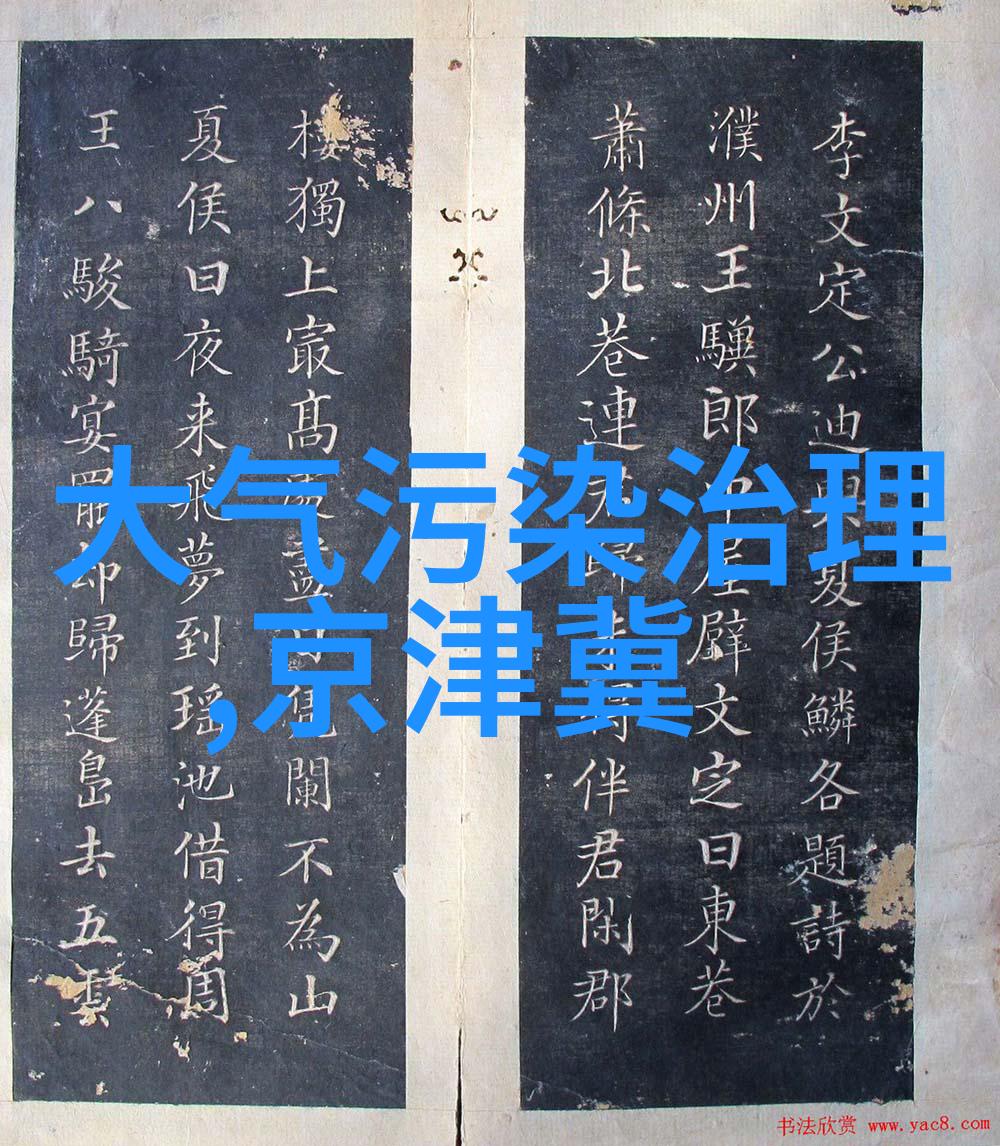 李文定公迪與夏侯鱗各題詩於
濮州王驥郎中屋壁文定曰東巷
蕭條北巷連君歸未得伴君閑郡
樓獨上最髙處盡日凭闌不為山
夏侯曰夜来飛夢到瑶池借得周
王八駿騎宴罷却歸蓬島去五雲
大气污染治理
,京津冀
书法欣赏 www.yac8.com